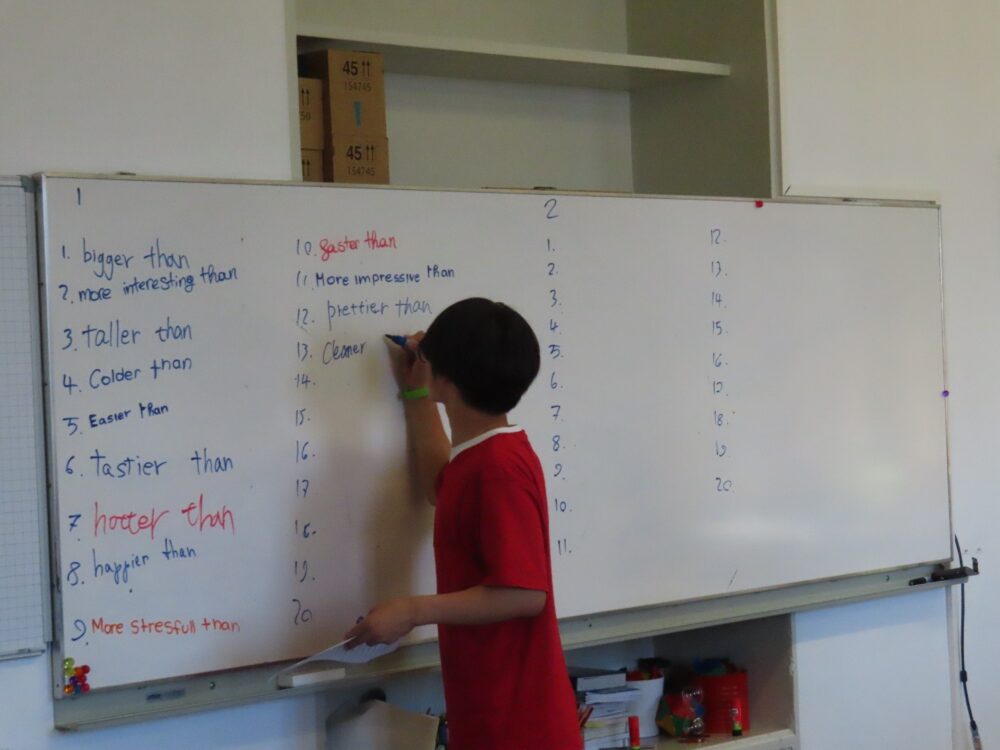 45
154745
50
45
154745
1
1. bigger than
2. more interesting than
3. taller than
4. Colder than
5. Easier than
6. Tastier than
7. hotter than
8. happier than
9. More stresfull than
10. faster than
11. More impressive than
12. prettier than
13. Cleaner
14.
15.
16.
17
18.
19.
20
2
1.
2.
3.
4.
5.
6.
7.
8.
9.
10.
11.
12.
13.
14.
15.
16.
17.
18.
19.
20.